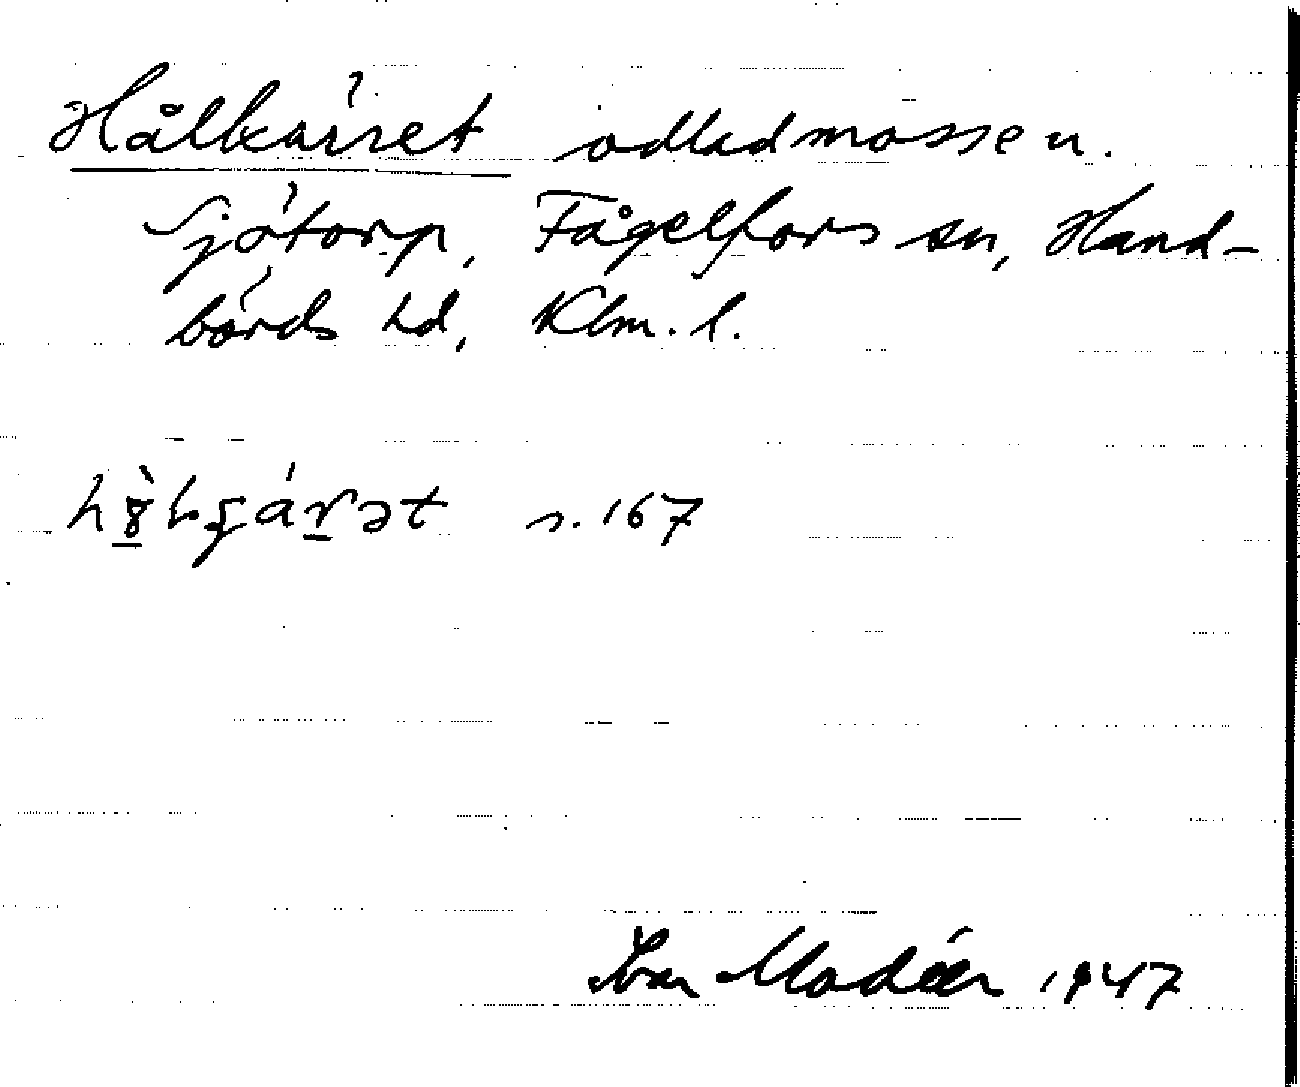 Hålkärret odladmosse n.
Sjötorp, Fågelfors sn, Hand-
börds hd, Klm. l.
s. 167
Ivar Modéer 1947